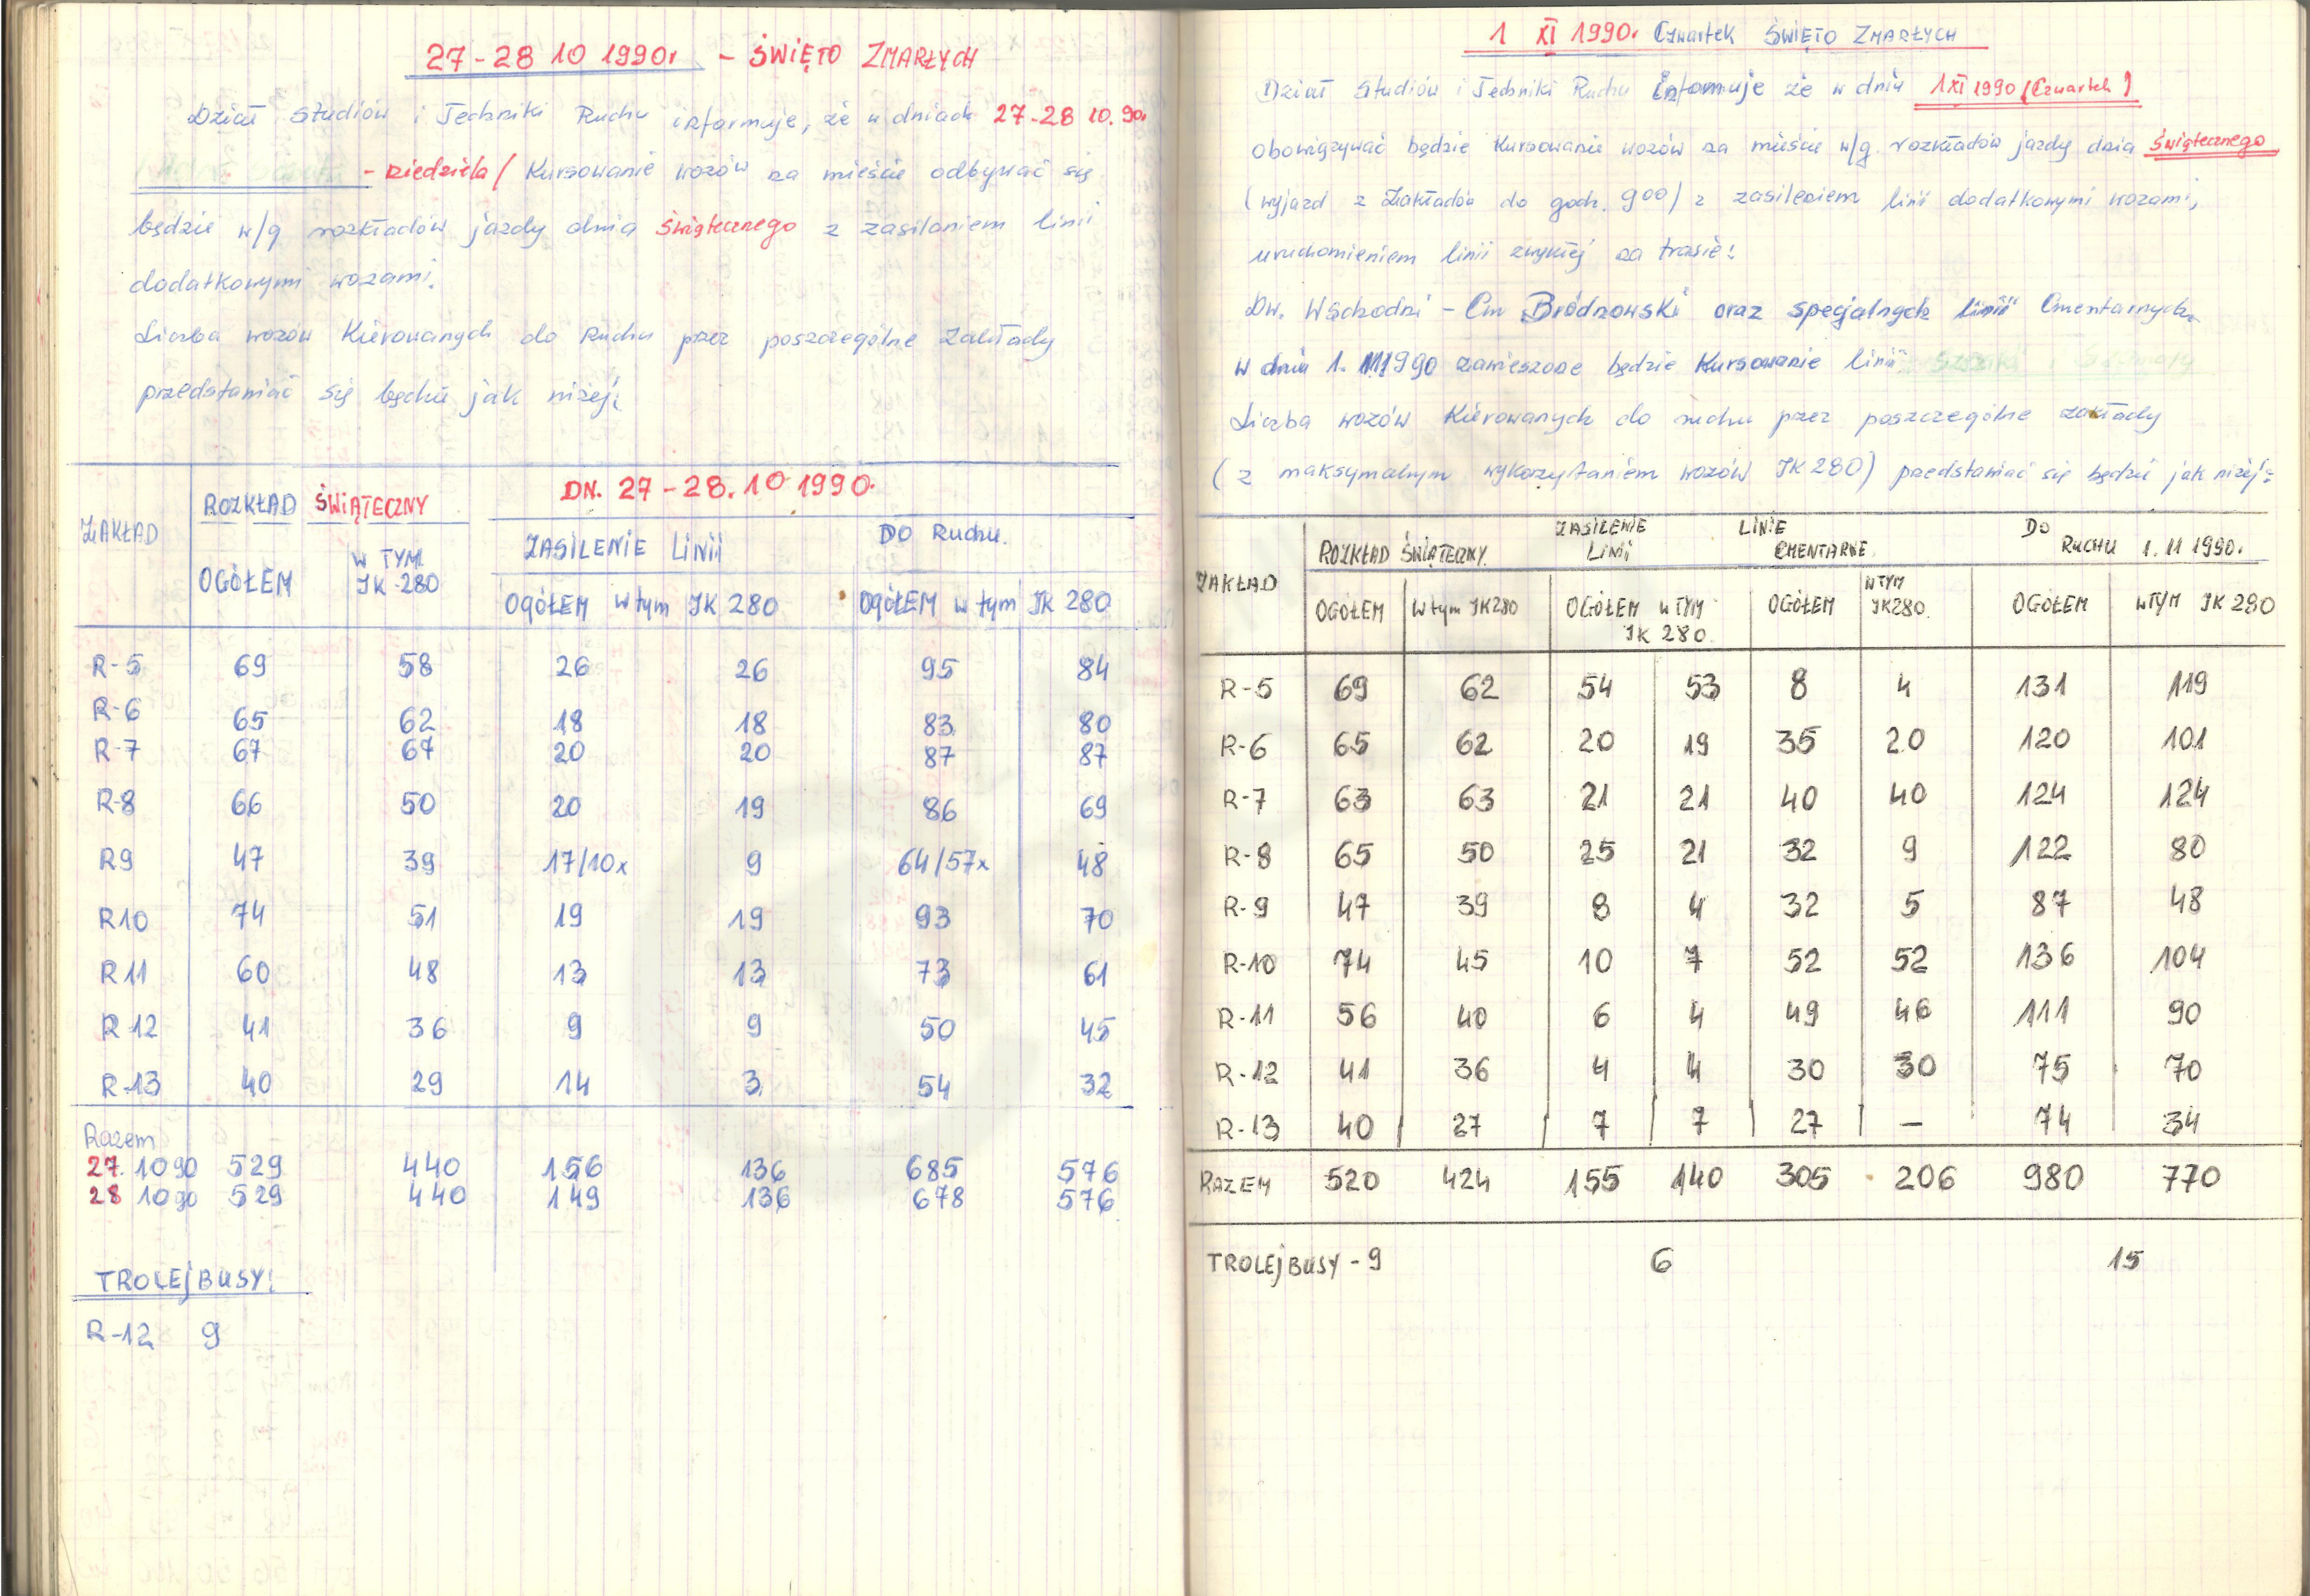 27-28 10 1990r - ŚWIĘTO ZMARŁYCH
Dział Studiów i Techniki Ruchu informuje, że w dniach 27-28 10.90r
- niedziela / Kursowanie wozów na mieście odbywać się
będzie w/g rozkładów jazdy dnia świątecznego z zasilaniem linii
dodatkowymi wozami.
Liczba wozów Kierowanych do Ruchu przez poszczególne Zakłady
przedstawiać się będzie jak niżej:
ZAKŁAD ROZKŁAD ŚWIĄTECZNY DN. 27-28.10 1990.
ZASILENIE LINII DO Ruchu.
OGÓŁEM W TYM JK-280 OGÓŁEM w tym JK 280 OGÓŁEM w tym JK 280
R-5 69 58 26 26 95 84
R-6 65 62 18 18 83 80
R-7 67 67 20 20 87 87
R-8 66 50 20 19 86 69
R9 47 39 17/10x 9 64/57x 48
R10 74 51 19 19 93 70
R11 60 48 13 13 73 61
R-12 41 36 9 9 50 45
R-13 40 29 14 3 54 32
Razem
27.10 90 529 440 156 136 685 576
28 10 90 529 440 149 136 678 576
TROLEjBUSY:
R-12 9
1 XI 1990. Czwartek ŚWIĘTO ZMARŁYCH
Dział Studiów i Techniki Ruchu informuje że w dniu 1 XI 1990 (Czwartek)
obowiązywać będzie Kursowanie wozów na mieście w/g rozkładów jazdy dnia świątecznego
(wyjazd z Zakładów do godz. 9 00) z zasileniem linii dodatkowymi wozami,
uruchomieniem linii zwykłej na trasie:
Dw. Wschodni - Cm Bródnowski oraz specjalnych linii Cmentarnych
w dniu 1. 11 1990 zawieszone będzie Kursowanie linii
Liczba wozów Kierowanych do ruchu przez poszczególne zakłady
(z maksymalnym wykorzystaniem wozów JK 280) przedstawiać się będzie jak niżej:
ZAKŁAD ROZKŁAD ŚWIĄTECZNY. ZASILENIE LINII LINIE CMENTARNE DO RUCHU 1. 11 1990.
OGÓŁEM W tym JK280 OGÓŁEM w TYM JK 280 OGÓŁEM W TYM JK280. OGÓŁEM w TYM JK 280
R-5 69 62 54 53 8 4 131 119
R-6 65 62 20 19 35 20 120 101
R-7 63 63 21 21 40 40 124 124
R-8 65 50 25 21 32 9 122 80
R-9 47 39 8 4 32 5 87 48
R-10 74 45 10 7 52 52 136 104
R-11 56 40 6 4 49 46 111 90
R-12 41 36 4 4 30 30 75 70
R-13 40 27 7 7 27 — 74 34
RAZEM 520 424 155 140 305 206 980 770
TROLEjBUSY - 9 6 15